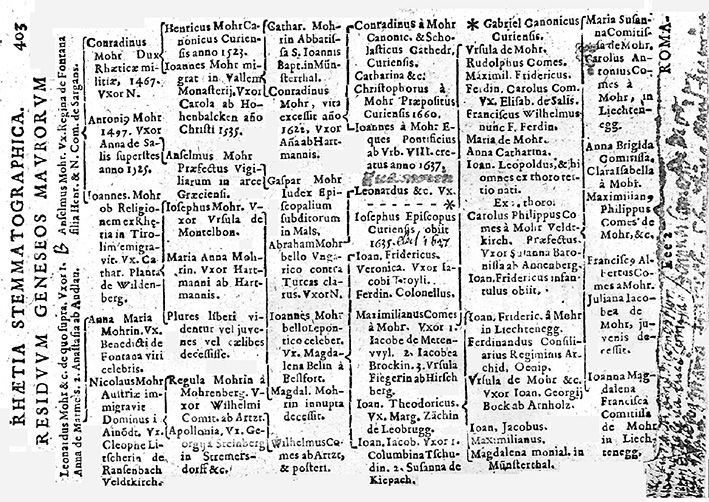 403
RHÆTIA STEMMATOGRAPHICA.
RESIDVVM GENESEOS MAVRORVM
Leonardus Mohr &c. de quo supra. Vxor 1. Anselmus Mohr. Vx. Regina de Fontana
Anna de Marmels. 2. Anastasia ab Andlau. filia Henr. & N. Com. de Sargans.
Conradinus
Mohr Dux
Rhæticæ mi-
litiæ, 1467.
Vxor N.
Antoniꝰ Mohr
1497. Vxor
Anna de Sa-
lis superstes
anno 1525.
Ioannes. Mohr
ob Religio-
nem ex Rhę-
tia in Tiro-
lim emigra-
vit. Vx. Ca-
thar. Planta
de Wilden-
berg.
Anna Maria
Mohrin. Vx.
Benedicti de
Fontana viri
celebris.
Nicolaus Mohr
Austriæ im-
migravit
Dominus i
Ainödt. Vx.
Cleophe Li-
tscherin de
Ransenbach
Veldtkirch.
Henricus Mohr Ca-
nonicus Curien-
sis anno 1523.
Ioannes Mohr mi-
grat in Vallem
Monasterij, Vxor
Carola ab Ho-
henbalcken año
Christi 1535.
Anselmus Mohr
Præfectus Vigi-
liarum in arce
Græciensi.
Iosephus Mohr. V-
xor Vrsula de
Montelbon.
Maria Anna Moh-
rin. Vxor Hart-
manni ab Hart-
mannis.
Plures liberi vi-
dentur vel juve-
nes vel cælibes
decessisse.
Regula Mohrin à
Mohrenberg. V-
xor Wilhelmi
Comit. ab Artzt.
Apollonia. Vx. Ge-
orgij Steinberg
in Stremers-
dorff &c.
Cathar. Moh-
rin Abbatis-
sa S. Ioannis
Bapt. in Mün-
sterthal.
Conradinus
Mohr, vita
excessit año
1622. Vxor
Añaab Hart-
mannis.
Gaspar Mohr
Iudex Epi-
scopalium
subditorum
in Mals.
Abraham Mohr
bello Vnga-
rico contra
Turcas cla-
rus. Vxor N.
Ioannes Mohr
bello Lepon-
tico celeber.
Vx. Magda-
lena Belin à
Belfort.
Magdal. Moh-
rin innupta
decessit.
Wilhelmus Co-
mes ab Artzt,
& posteri.
Conradinus à Mohr
Canonic. & Scho-
lasticus Cathedr.
Curiensis.
Catharina &c:
Christophorus à
Mohr Præpositus
Curiensis 1660.
Ioannes à Mohr E-
ques Pontificius
ab Vrb. VIII. cre-
atus anno 1637.
Leonardus &c. Vx.
*
Iosephus Episcopus
Curiensis, obiit
1635.
Ioan. Fridericus.
Veronica. Vxor Ia-
cobi Troyli.
Ferdin. Colonellus.
Maximilianus Comes
à Mohr. Vxor 1.
Iacobe de Meren-
vvyl. 2. Iacobea
Brockin. 3. Vrsula
Fiegerin ab Hirsch
berg.
Ioan. Theodoricus.
Vx. Marg. Zächin
de Leobrugg.
Ioan. Iacob. Vxor 1.
Columbina Tschu-
din. 2. Susanna de
Kiepach.
* Gabriel Canonicus
Curiensis.
Vrsula de Mohr.
Rudolphus Comes.
Maximil. Fridericus.
Ferdin. Carolus Com.
Vx. Elisab. de Salis.
Franciscus Wilhelmus
nunc F. Ferdin.
Maria de Mohr.
Anna Catharina.
Ioan. Leopoldus, & hi
omnes ex thoro ter-
tio nati.
Ex 1. thoro:
Carolus Philippus Co
mes à Mohr Veldt-
kirch. Præfectus.
Vxor Susanna Baro-
nissa ab Annenberg.
Ioan. Fridericus infan-
tulus obiit.
Ioan. Frideric. à Mohr
in Liechtenegg.
Ferdinandus Consili-
arius Regiminis Ar-
chid. Oenip.
Vrsula de Mohr &c.
Vxor Ioan. Georgij
Bock ab Arnholz.
Ioan, Jacobus.
Maximilianus.
Magdalena monial. in
Münsterthal.
Maria Susan-
na Comitis-
sa de Mohr.
Carolus An-
tonius Co-
mes à
Mohr, in
Liechten-
egg.
Anna Brigida
Comitissa.
Clara Isabella
à Mohr.
Maximilian,
Philippus
Comes de
Mohr, &c.
Francisc9 Al-
bertus Co-
mes à Mohr.
Juliana Iaco-
bea de
Mohr, ju-
venis de-
cessit.
Ioanna Mag-
dalena
Francisca
Comitissa
de Mohr
in Liech-
tenegg.
ROMA-
Eee 2